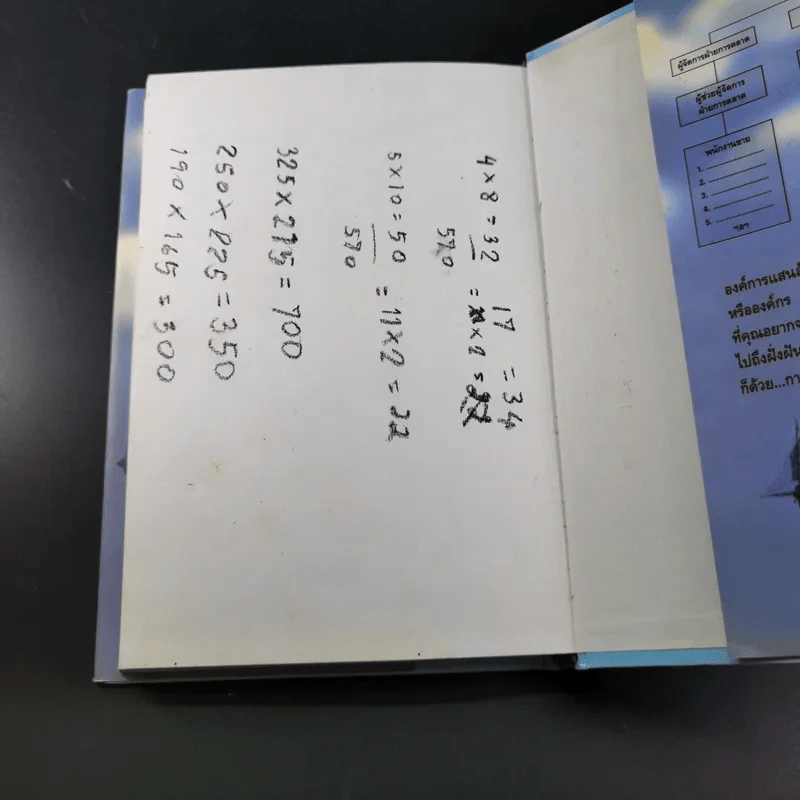 4 x 8 = 32
570
17 = 34
= x 2 =
5 x 10 = 50 = 11 x 2 = 22
570
325 x 275 = 700
250 x 225 = 350
190 x 165 = 300
ผู้จัดการฝ่ายการตลาด
ผู้ช่วยผู้จัดการ
ฝ่ายการตลาด
พนักงานขาย
1. ..................
2. ..................
3. ..................
4. ..................
5. ..................
ฯลฯ
องค์การแสนสั
หรือองค์กร
ที่คุณอยากจ
ไปถึงฝั่งฝัน
ก็ด้วย...กา